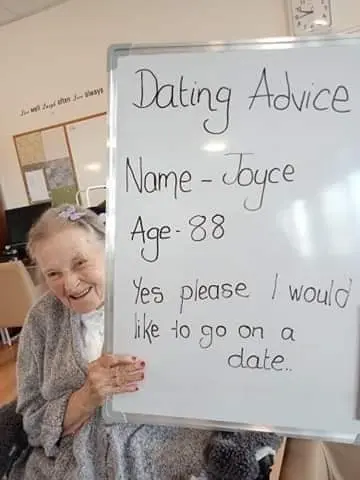 Live well Laugh often Love always
Dating Advice
Name - Joyce
Age - 88
Yes please I would
like to go on a
date..